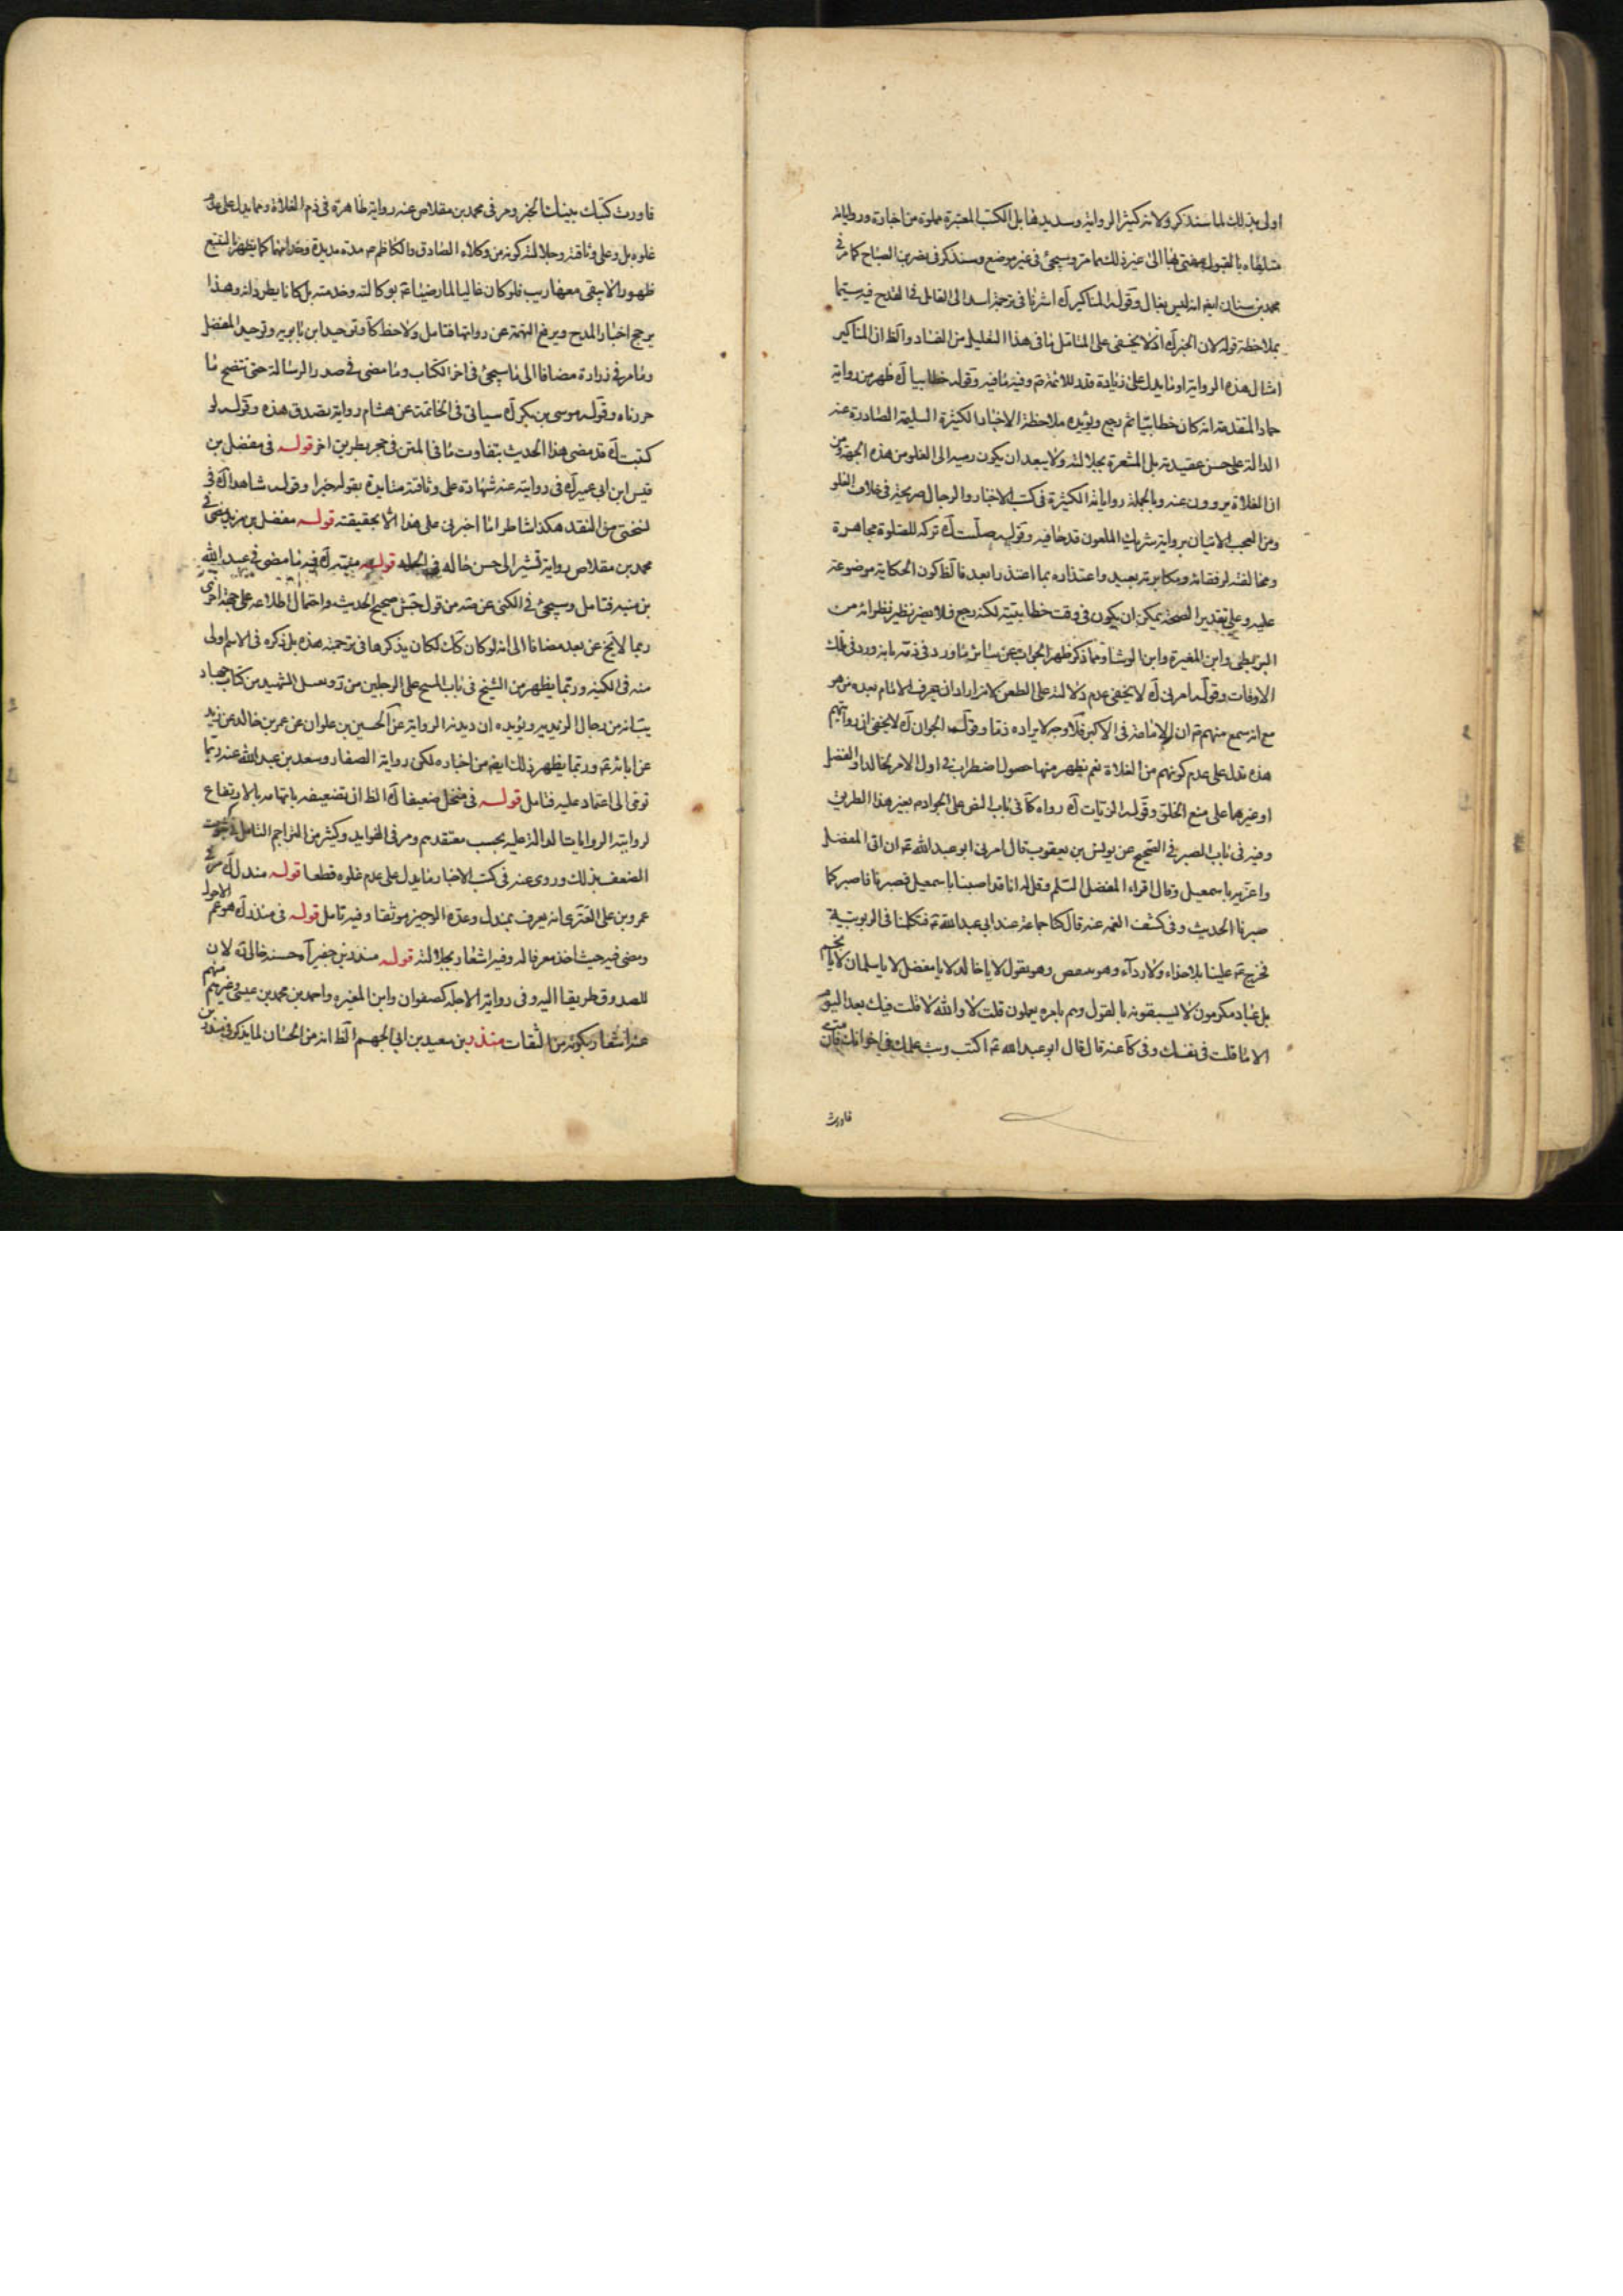 اولى بذلك لما سنذكر ولانه كثير الرواية وسديدها بل الكتب المعتبرة مملوة من اخباره ورواياته
متلقاه بالقبول الى غير ذلك مما مر وسيجئ في غير موضع وسنذكر في نصر بن الصباح كما مر في
محمد بن سنان ايضا انه ليس بغال وقوله المناكير آه اشرنا في ترجمة الى التامل في القدح فيه سيما
بملاحظة قوله لان الخبر آه اذ لا يخفى على المتامل ما في هذا التعليل من الفساد والظ ان المناكير
امثال هذه الرواية او ما يدل على زيادة قدر للائمة ع وفيه ما فيه وقوله خطابيا آه ظهر من رواية
حماد المتقدمة انه كان خطابيا ثم رجع ويؤيده ملاحظة الاخبار الكثيرة السليمة الصادرة عنه
الدالة على حسن عقيدته بل المشعرة بجلالته ولا يبعد ان يكون رميه الى الغلو من هذه الجهة ومن
ان الغلاة يروون عنه وبالجملة رواياته الكثيرة في كتب الاخبار والرجال صريحة في خلاف الغلو
ومن العجب الاتيان برواية شريك الملعون قدحا فيه وقوله صليت آه تركه للصلوة مجاهرة
ومخالفته لرفقائه ومكابرته بعيد واعتذاره بما اعتذر ابعد فالظ كون الحكاية موضوعة
عليه وعلى تقدير الصحة يمكن ان يكون في وقت خطابيته لكنه رجع فلا يضر نظير نظرائه من
البزنطي وابن المغيرة وابن الوشا ومما ذكر ظهر الجواب عن سائر ما ورد في ذمه بانه ورد في تلك
الاوقات وقوله امرني آه لا يخفى عدم دلالته على الطعن لانه اراد ان يعرف الامام بعده من هو
مع انه سمع منهم ع ان الامامة في الاكبر فلا وجه لايراده ذما وقوله الجوان آه لا يخفى ان روايتهم
هذه تدل على عدم كونهم من الغلاة نعم يظهر منها حصول اضطراب في اول الامر لخالد او المفضل
او غيرهما على منع الخلق وقوله الزيات آه رواه كا في باب النص على الجواد ع بغير هذا الطريق
وفيه في باب الصبر في الصحيح عن يونس بن يعقوب قال امرني ابو عبد الله ع ان اتى المفضل
واعزيه باسمعيل وقال اقراء المفضل السلم وقل له انا قد اصبنا باسمعيل فصبرنا فاصبر كما
صبرنا الحديث وفي كشف الغمه عنه قال كنا جماعة عند ابي عبد الله ع فتكلمنا في الربوبية
فخرج ع علينا بلا حذاء ولا رداء وهو وهو يقول لا يا خالد لا يا مفضل لا يا سليمان لا يا نجم
بل عباد مكرمون لا يسبقونه بالقول وهم بامره يعملون قلت لا والله لا قلت فيك بعد اليوم
الا ما قلت في نفسك وفي كا عنه قال قال ابو عبد الله ع اكتب وبث علمك في اخوانك فان مت
فاورث
فاورث كتبك بنيك الخبر ومر في محمد بن مقلاص عنه رواية ظاهرة في ذم الغلاة ومما يدل على عدم
غلوه بل وعلى وثاقته وجلالته كونه من وكلاء الصادق والكاظم ع مدة مديدة كما يظهر بالتتبع
ظهورا لا يبقى معها ريب فلو كان غاليا لما رضيا ع بوكالته وخدمته بل كانا يطردانه وهذا
يرجح اخبار المدح ويرفع التهمة عن رواتها فتامل ولاحظ كا وتوحيد ابن بابويه وتوحيد المفضل
وما مر في زرارة مضافا الى ما سيجئ في اخر الكتاب وما مضى في صدر الرسالة حتى تتضح ما
حررناه وقوله موسى بن بكر آه سياتي في الخاتمة عن هشام رواية تصدق هذه وقوله لو
كتبت آه قد مضى هذا الحديث بتفاوت ما في المتن في حجر بطريق اخر قوله في مفضل بن
قيس ابن ابي عمير آه في روايته عنه شهادة على وثاقته متايدة بقوله خبرا وقوله شاهدا آه في
نسختي من النقد هكذا شاطرا ما اخبرني على هذا الا بحقيقته قوله مفضل بن مزيد مضى في
محمد بن مقلاص رواية تشير الى حسن حاله في الجملة قوله منبه آه فيه ما مضى في عبد الله
بن منبه فتامل وسيجئ في الكنى عن مته من قول جش صحيح الحديث واحتمال اطلاعه على حجة اخرى
ربما لا يخ عن بعد مضافا الى انه لو كان كك لكان يذكرها في ترجمته هذه بل ذكره في الاسم اولى
منه في الكنية وربما يظهر من الشيخ في باب المسح على الرجلين من
يب انه من رجال الزيدية ويؤيده ان ديدنه الرواية عن الحسين بن علوان عن عمر بن خالد عن زيد
عن ابائه ع وربما يظهر ذلك ايضا من اخباره لكن رواية الصفار وسعد بن عبد الله عنه ربما
تومى الى اعتماد عليه فتامل قوله في منخل ضعيفا آه الظ ان تضعيفه باتهامه بالارتفاع
لروايته الروايات الدالة عليه بحسب معتقدهم ومر في الفوايد وكثير من التراجم التامل في ثبوت
الضعف بذلك وروى عنه في كتب الاخبار ما يدل على عدم غلوه قطعا قوله مندل آه مر في
عمرو بن على العنزى انه يعرف بمندل وعده الوجيز موثقا وفيه تامل قوله في منذر آه هو عم الاحول
ومضى فيه حيث اخذ معرفا له وفيه اشعار بجلالته قوله منذر بن جفير آه حسنه خالى ره لان
للصدوق طريقا اليه وفي رواية الاجلة كصفوان وابن المغيره واحمد بن محمد بن عيسى وغيرهم
عنه اشعار بكونه من الثقات منذر بن سعيد بن ابي الجهم الظ انه من الحسان لما يذكر في منذر بن